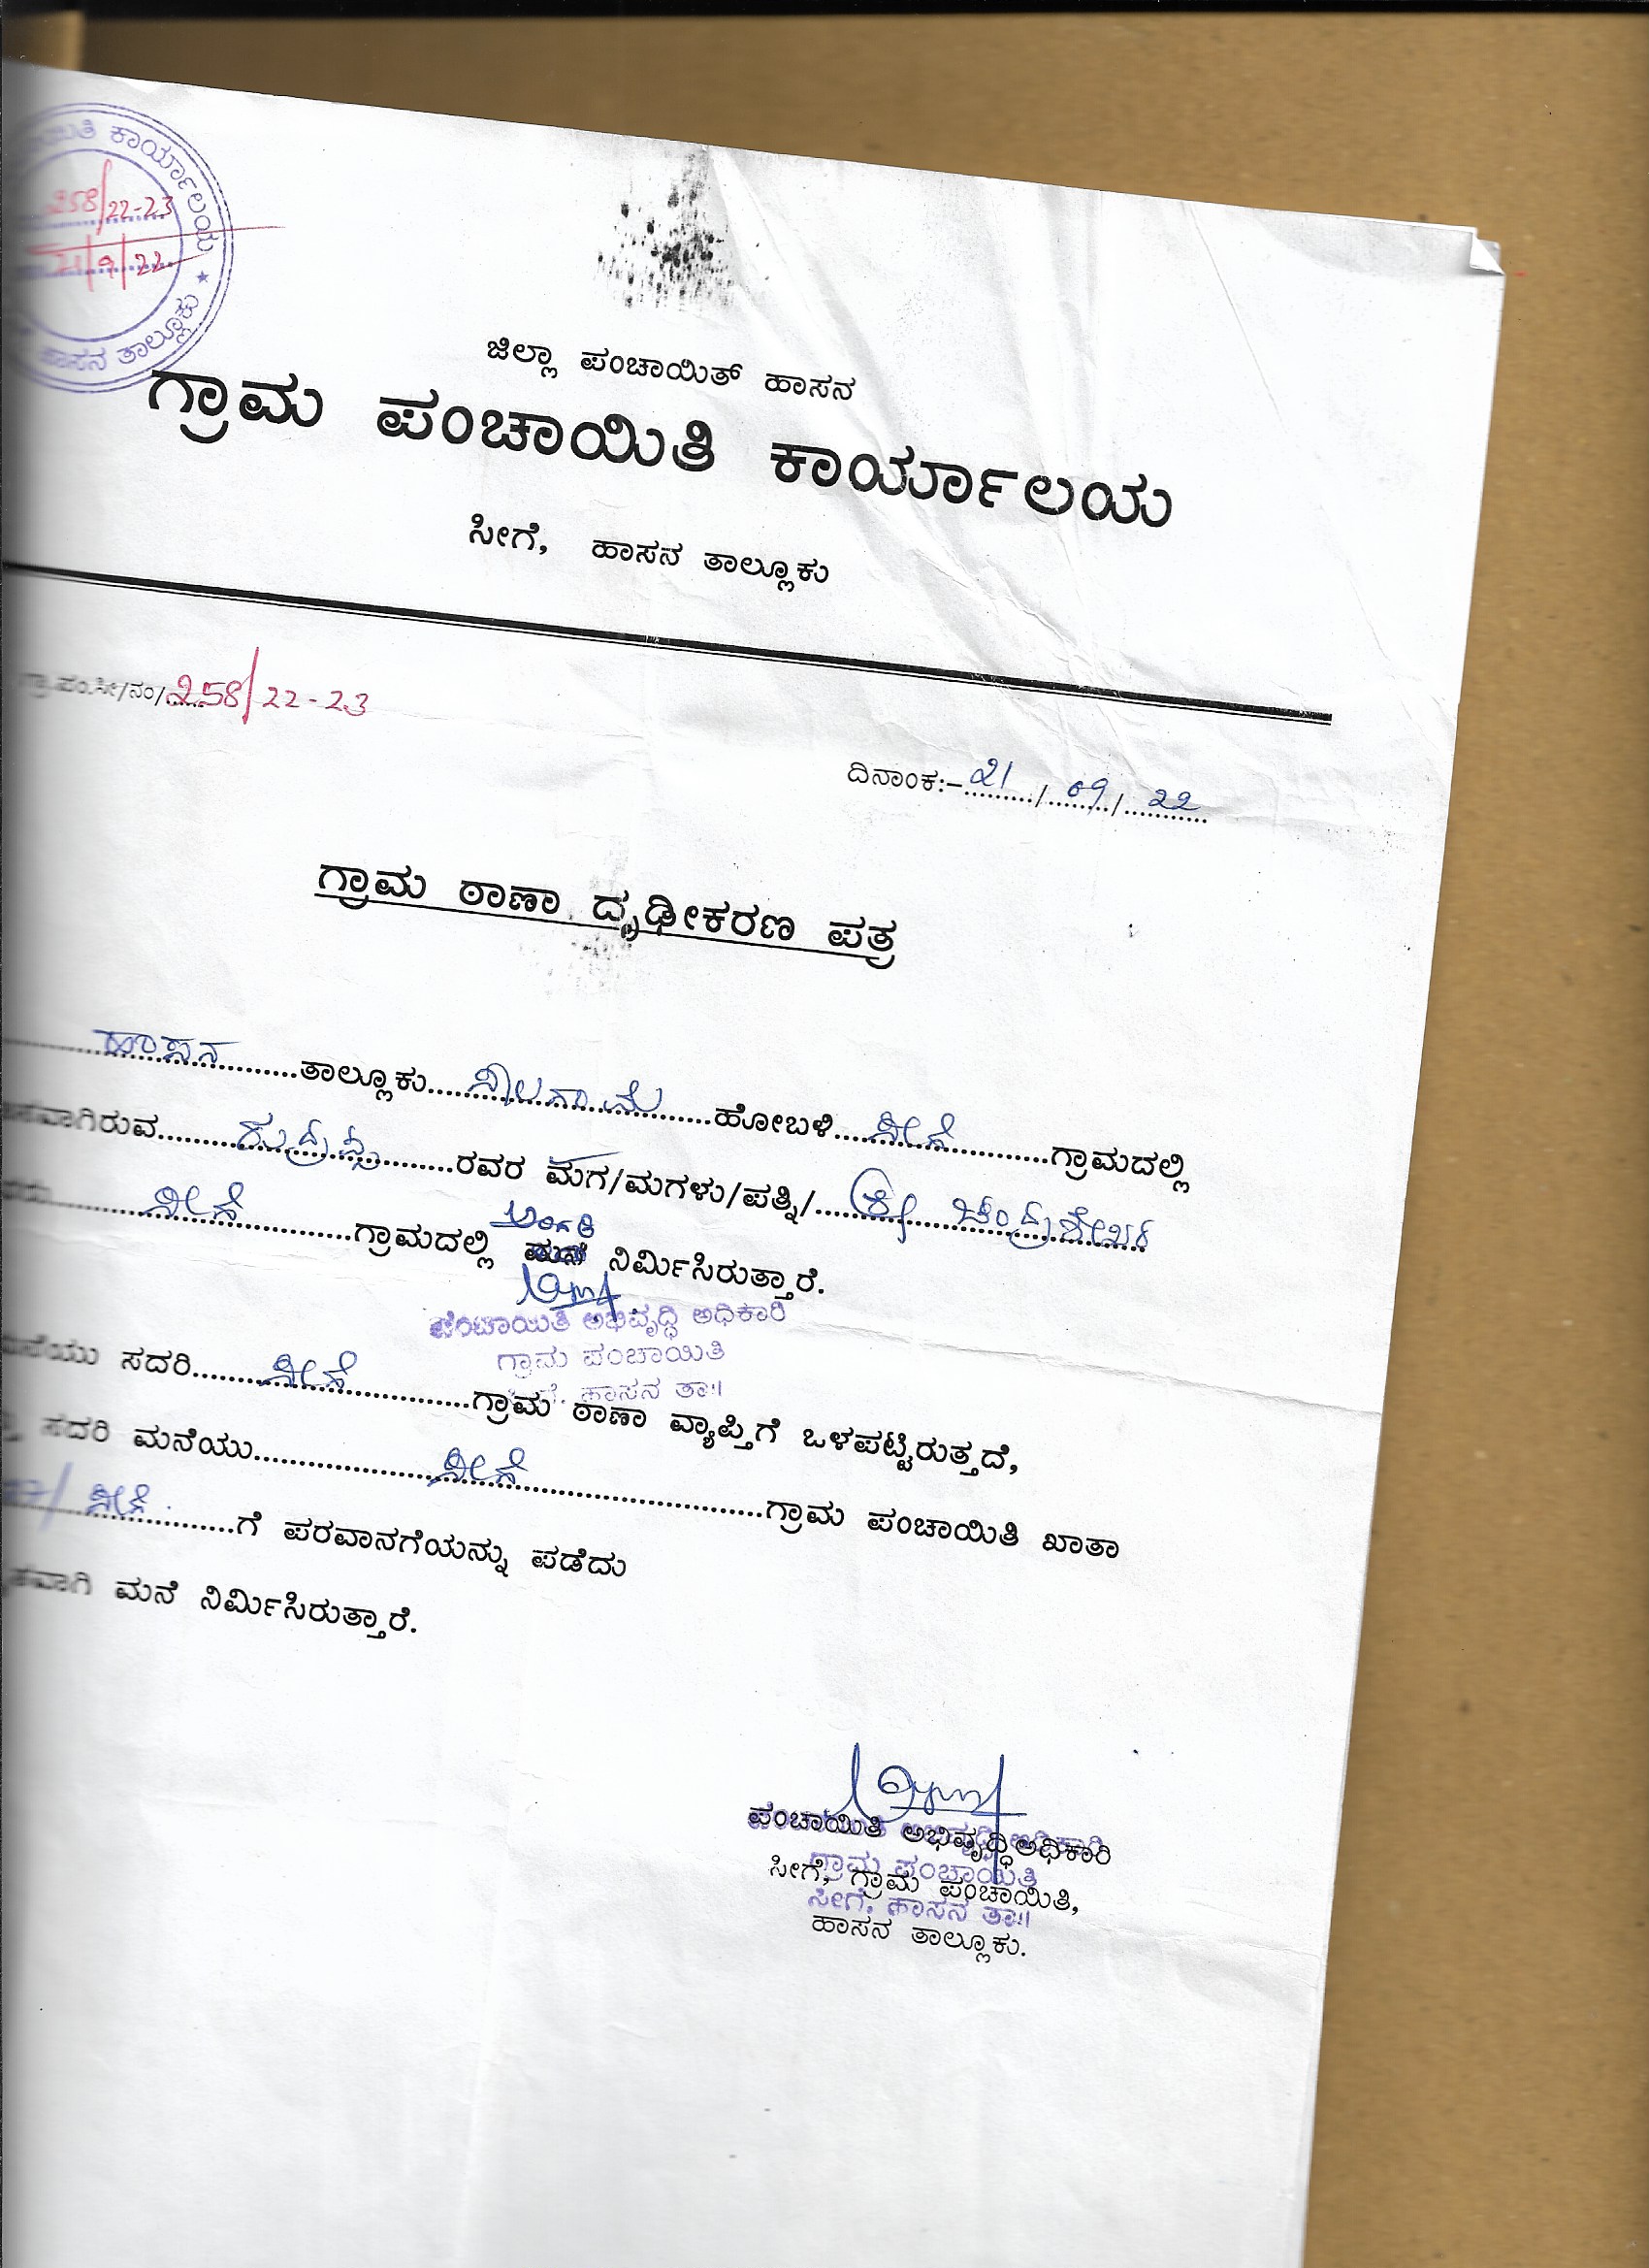 ಕಾರ್ಯಾಲಯ ★
258/22-23
21/9/22
ಹಾಸನ ತಾಲ್ಲೂಕು
ಜಿಲ್ಲಾ ಪಂಚಾಯಿತ್ ಹಾಸನ
ಗ್ರಾಮ ಪಂಚಾಯಿತಿ ಕಾರ್ಯಾಲಯ
ಸೀಗೆ, ಹಾಸನ ತಾಲ್ಲೂಕು
ಗ್ರಾ.ಪಂ.ಸೀ/ನಂ/.....258/22-23
ದಿನಾಂಕ:-21/09/22
ಗ್ರಾಮ ಠಾಣಾ ದೃಢೀಕರಣ ಪತ್ರ
ಹಾಸನ ತಾಲ್ಲೂಕು ಹೋಬಳಿ ಸೀಗೆ ಗ್ರಾಮದಲ್ಲಿ
ರುದ್ರಪ್ಪ ರವರ ಮಗ/ಮಗಳು/ಪತ್ನಿ/ ಶ್ರೀ ಚಂದ್ರಶೇಖರ
ಸೀಗೆ ಗ್ರಾಮದಲ್ಲಿ ಅಂಗಡಿ ನಿರ್ಮಿಸಿರುತ್ತಾರೆ.
ಪಂಚಾಯಿತಿ ಅಭಿವೃದ್ಧಿ ಅಧಿಕಾರಿ
ಗ್ರಾಮ ಪಂಚಾಯಿತಿ
ಹಾಸನ ತಾ॥
ಸದರಿ ಸೀಗೆ ಗ್ರಾಮ ಠಾಣಾ ವ್ಯಾಪ್ತಿಗೆ ಒಳಪಟ್ಟಿರುತ್ತದೆ,
ಸದರಿ ಮನೆಯು ಸೀಗೆ ಗ್ರಾಮ ಪಂಚಾಯಿತಿ ಖಾತಾ
ಸೀಗೆ ಗೆ ಪರವಾನಗೆಯನ್ನು ಪಡೆದು
ಮನೆ ನಿರ್ಮಿಸಿರುತ್ತಾರೆ.
ಪಂಚಾಯಿತಿ ಅಭಿವೃದ್ಧಿ ಅಧಿಕಾರಿ
ಗ್ರಾಮ ಪಂಚಾಯಿತಿ
ಸೀಗೆ, ಗ್ರಾಮ ಪಂಚಾಯಿತಿ,
ಸೀಗೆ, ಹಾಸನ ತಾ॥
ಹಾಸನ ತಾಲ್ಲೂಕು.